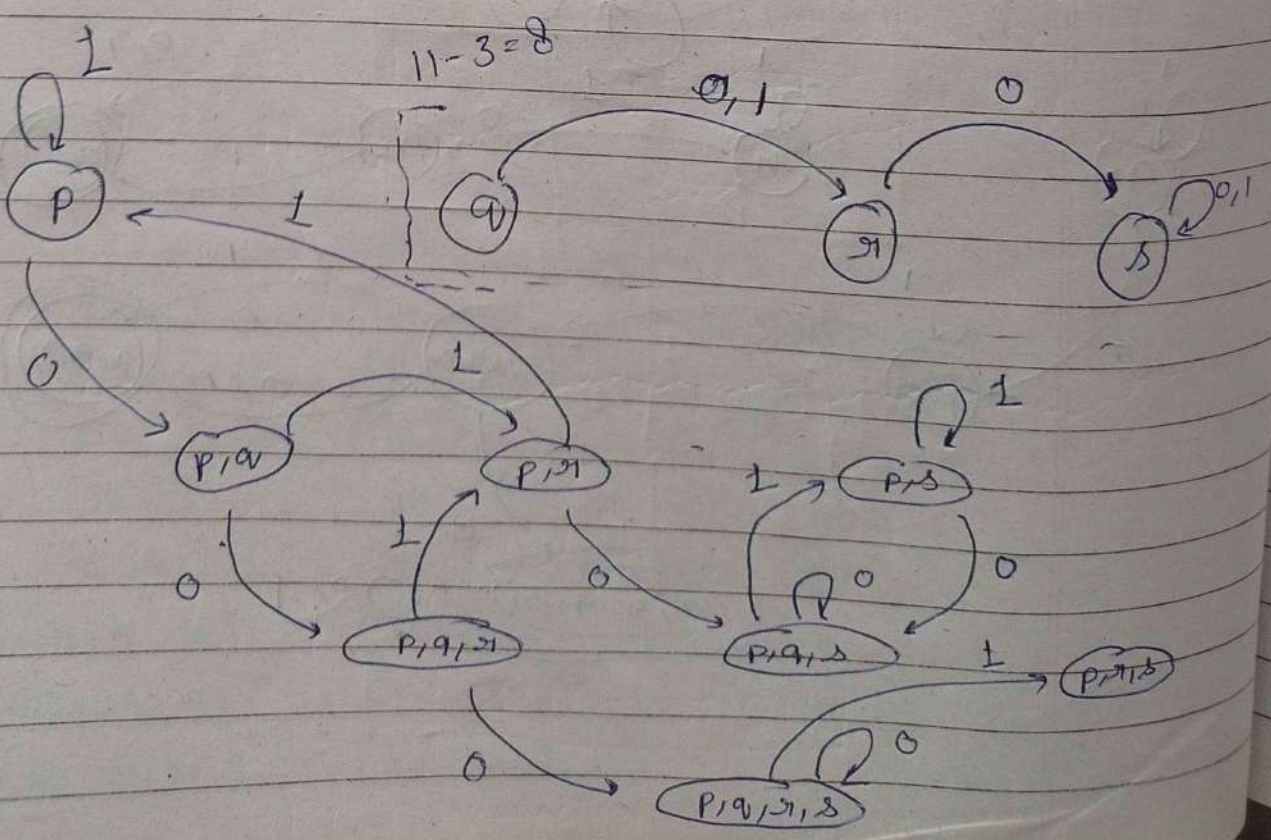 11-3=8
1
0,1
0
p
1
q
r
s
0,1
0
1
1
p,q
p,r
1
p,s
0
1
0
0
0
p,q,r
p,q,s
1
p,r,s
0
0
p,q,r,s